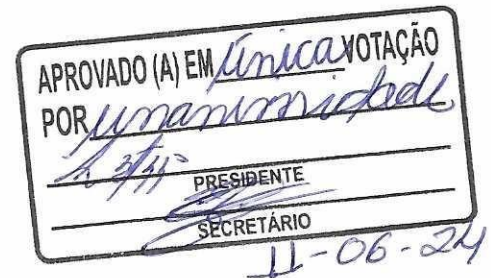 APROVADO (A) EM única VOTAÇÃO
POR unanimidade
PRESIDENTE
SECRETÁRIO
11-06-24